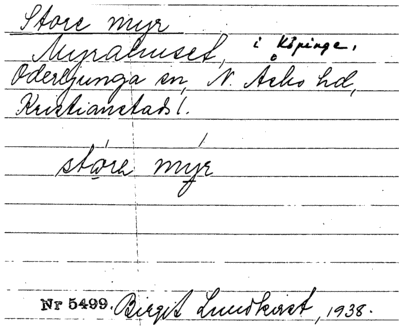 Store myr
Myrahuset, i Köpinge,
Oderljunga sn, N. Åsbo hd,
Kristianstads l.
störe myr
Nr 5499. Birgit Lundkvist, 1938.